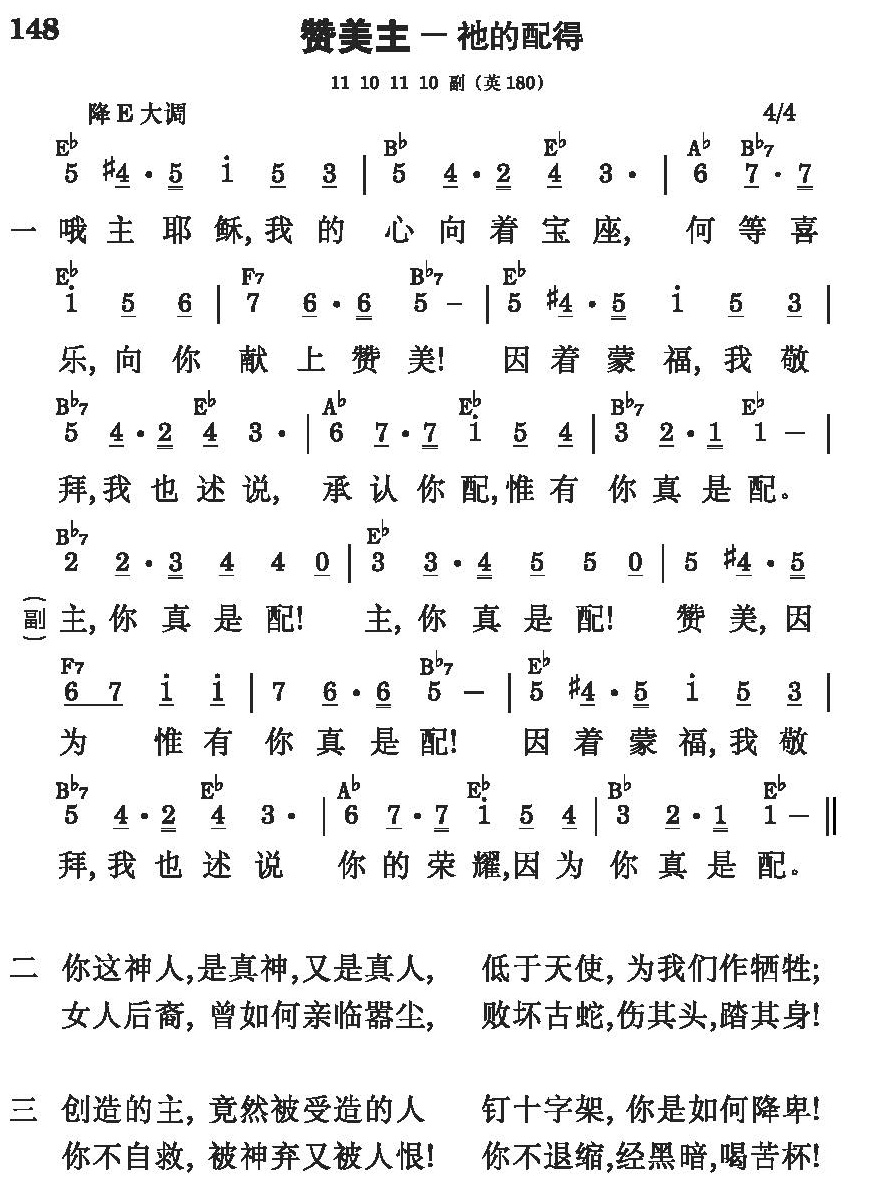 148
赞美主－祂的配得
11 10 11 10 副（英180）
降E大调 4/4
E♭ B♭ E♭ A♭ B♭7
5 #4 · 5 i 5 3 | 5 4 · 2 4 3 · | 6 7 · 7
一 哦主耶稣,我的心向着宝座, 何等喜
E♭ F7 B♭7 E♭
i 5 6 | 7 6 · 6 5 – | 5 #4 · 5 i 5 3 |
乐,向你献上赞美! 因着蒙福,我敬
B♭7 E♭ A♭ E♭ B♭7 E♭
5 4 · 2 4 3 · | 6 7 · 7 i 5 4 | 3 2 · 1 1 – |
拜,我也述说, 承认你配,惟有你真是配。
B♭7 E♭
2 2 · 3 4 4 0 | 3 3 · 4 5 5 0 | 5 #4 · 5
(副) 主,你真是配! 主,你真是配! 赞美,因
F7 B♭7 E♭
6 7 i i | 7 6 · 6 5 – | 5 #4 · 5 i 5 3 |
为惟有你真是配! 因着蒙福,我敬
B♭7 E♭ A♭ E♭ B♭ E♭
5 4 · 2 4 3 · | 6 7 · 7 i 5 4 | 3 2 · 1 1 – ‖
拜,我也述说 你的荣耀,因为你真是配。
二 你这神人,是真神,又是真人, 低于天使, 为我们作牺牲;
女人后裔, 曾如何亲临嚣尘, 败坏古蛇,伤其头,踏其身!
三 创造的主, 竟然被受造的人 钉十字架, 你是如何降卑!
你不自救, 被神弃又被人恨! 你不退缩,经黑暗,喝苦杯!